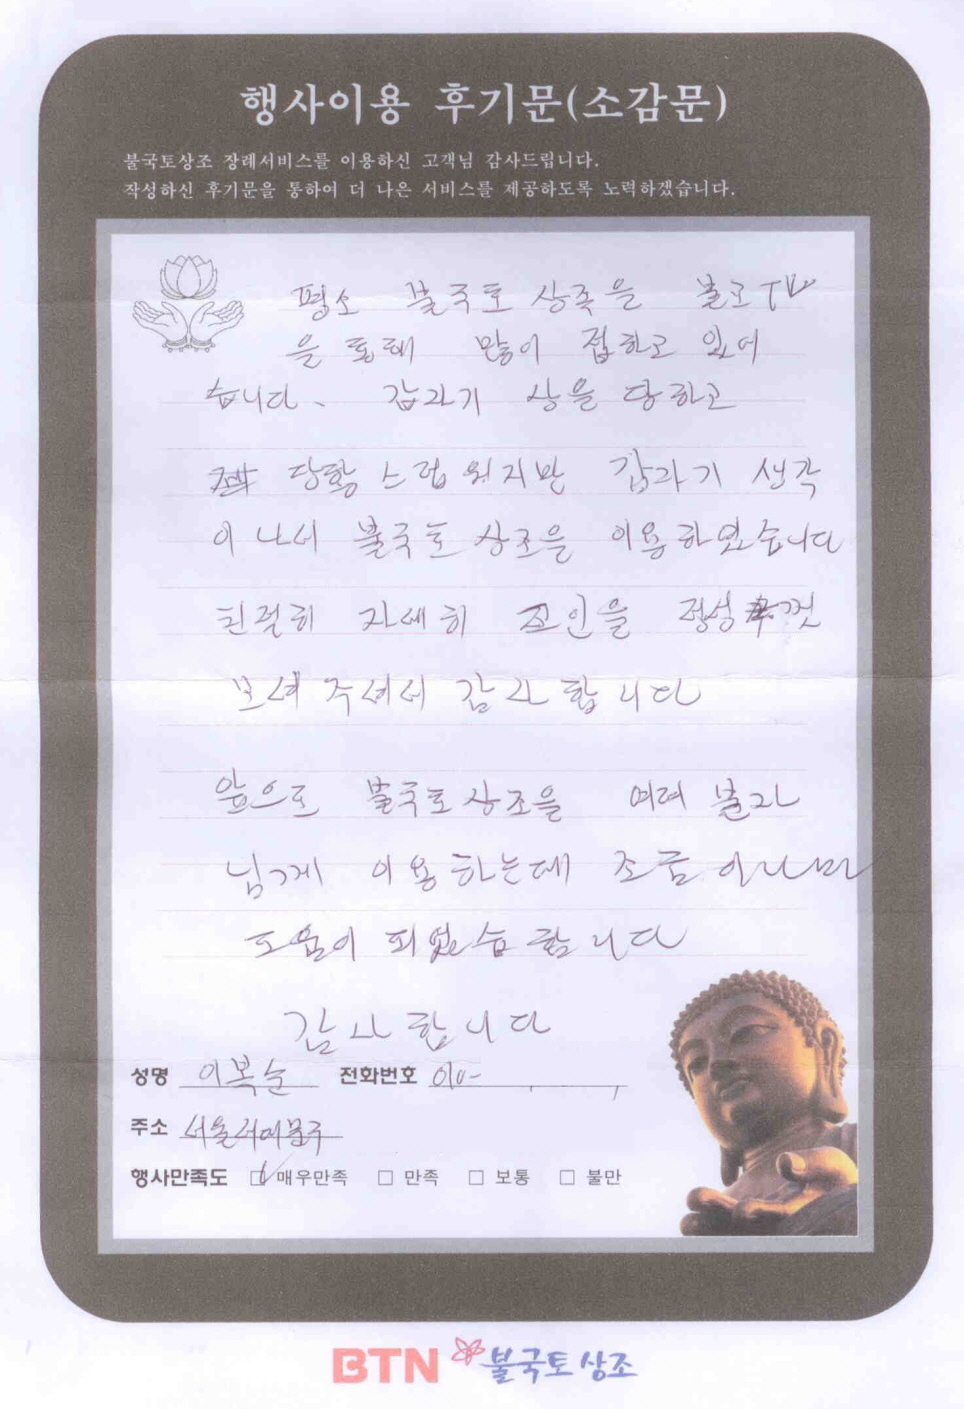 행사이용 후기문(소감문)
불국토상조 장례서비스를 이용하신 고객님 감사드립니다.
작성하신 후기문을 통하여 더 나은 서비스를 제공하도록 노력하겠습니다.
평소 불국토 상족을 불교TV
을 통해 많이 접하고 있어
습니다. 갑자기 상을 당하고
당황스럽웠지만 갑자기 생각
이 나서 불국토 상조을 이용하였습니다
친절히 자세히 정성껏
보셔주셔서 감사합니다
앞으로 불국토상조을 여려 불자
님게 이용하는데 조금이나마
도움이 합니다
감사합니다
성명 이복순 전화번호 010-
주소 서울서대문구
행사만족도 □ 매우만족 □ 만족 □ 보통 □ 불만
BTN 불국토상조